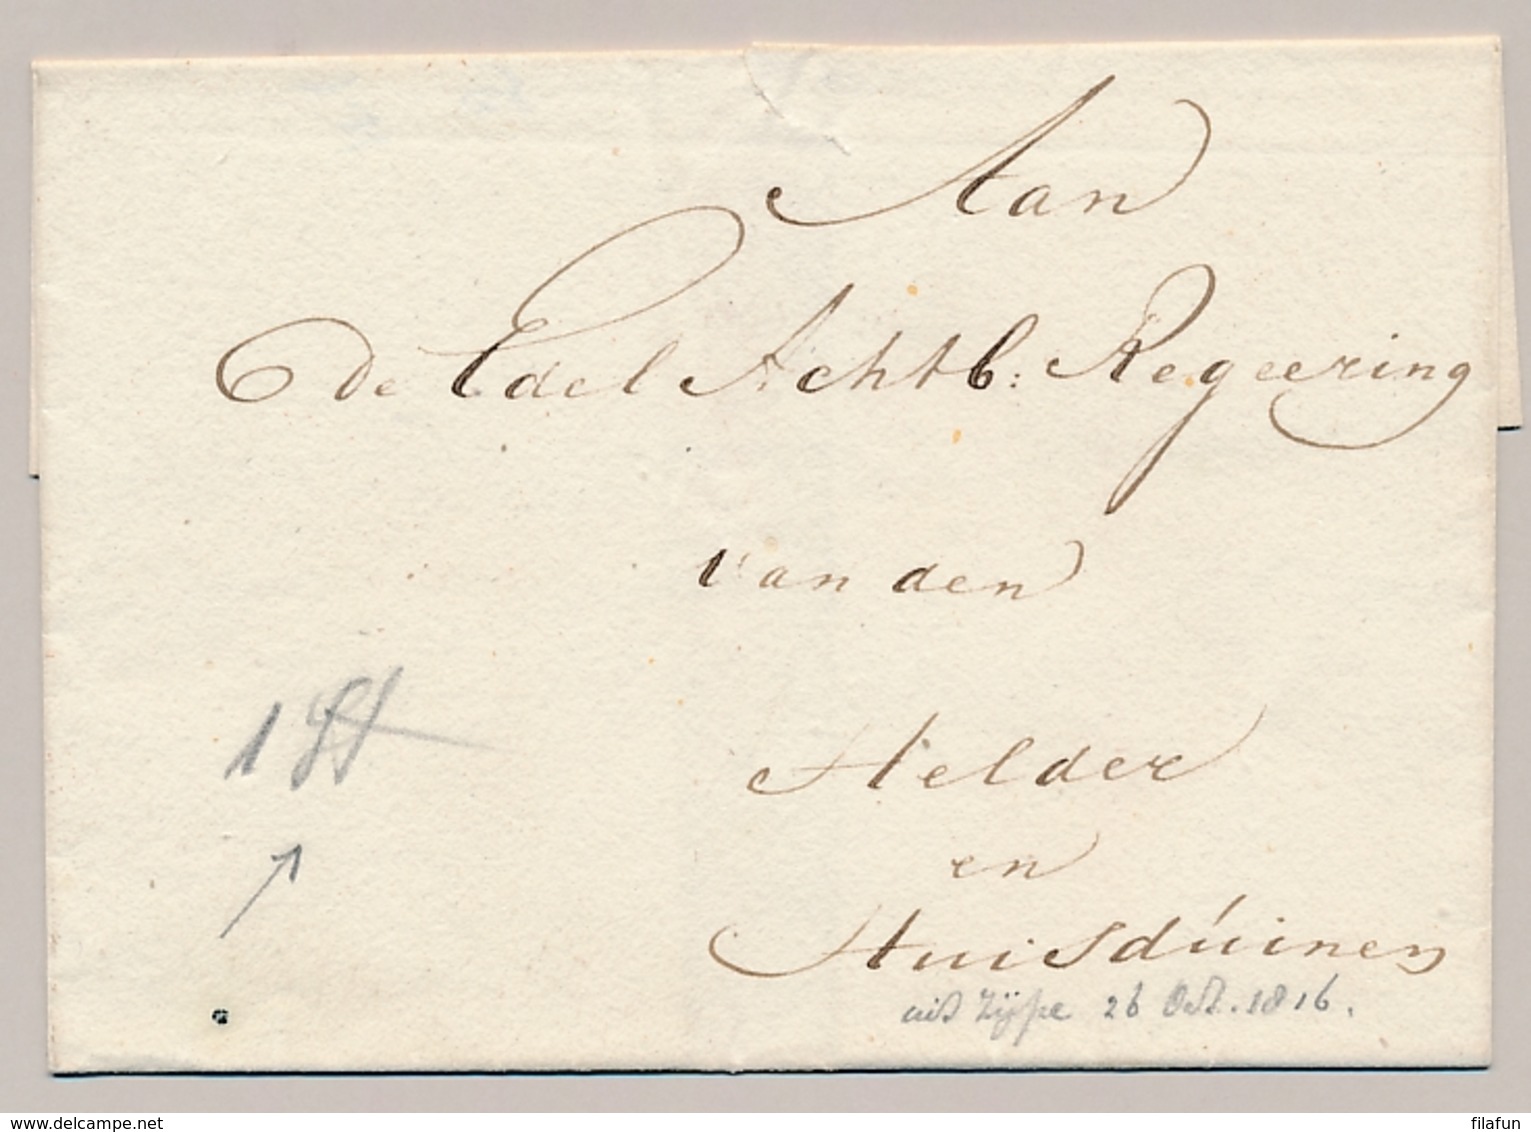 Aan
De Edel Achtb: Regeering
van den
Helder
en
Huisdúinen
uit Zijpe 26 Oct. 1816.
1
www.delcampe.net
filafun